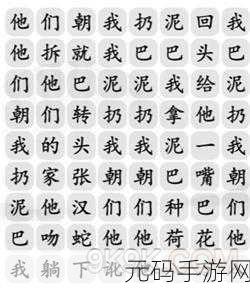 他们朝我扔泥回我
他拆就我巴巴头巴
们他巴泥泥我给泥
朝们转扔扔拿他扔
我的头我我泥一我
扔家张朝朝巴嘴朝
泥他汉们们种巴们
巴吻蛇他他荷花他
我躺下讹
元码手游网